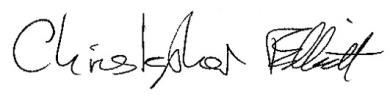 Christopher Elliott